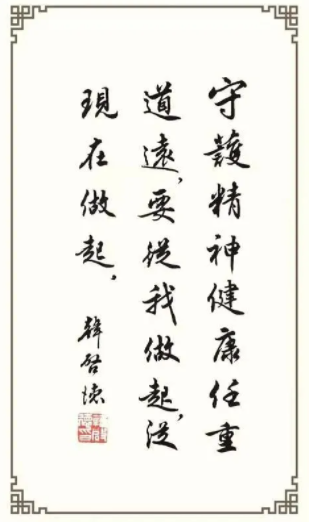 守護精神健康任重
道遠，要從我做起，從
現在做起，
韓啓德